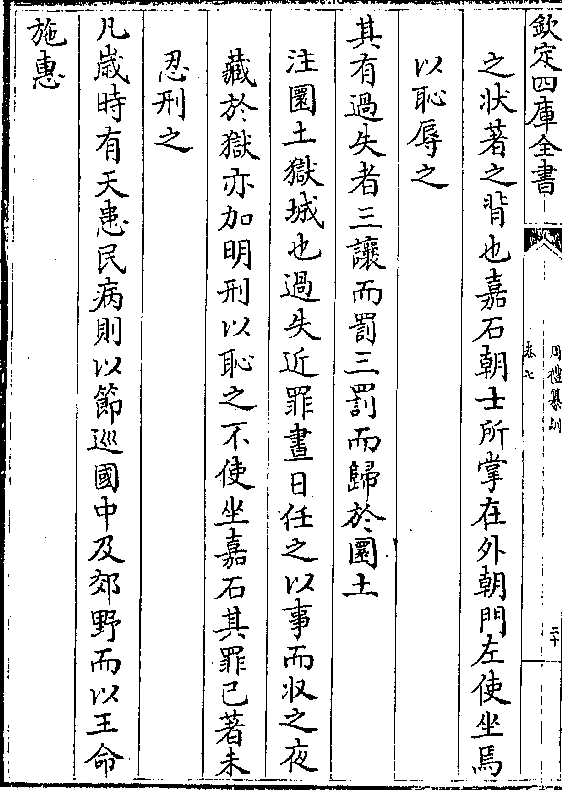 欽定四庫全書
周禮纂訓
卷七
二十
之狀著之背也嘉石朝士所掌在外朝門左使坐焉
以恥辱之
其有過失者三讓而罰三罰而歸於圜土
注圜土獄城也過失近罪晝日任之以事而收之夜
藏於獄亦加明刑以恥之不使坐嘉石其罪已著未
忍刑之
凡歲時有天患民病則以節巡國中及郊野而以王命
施惠